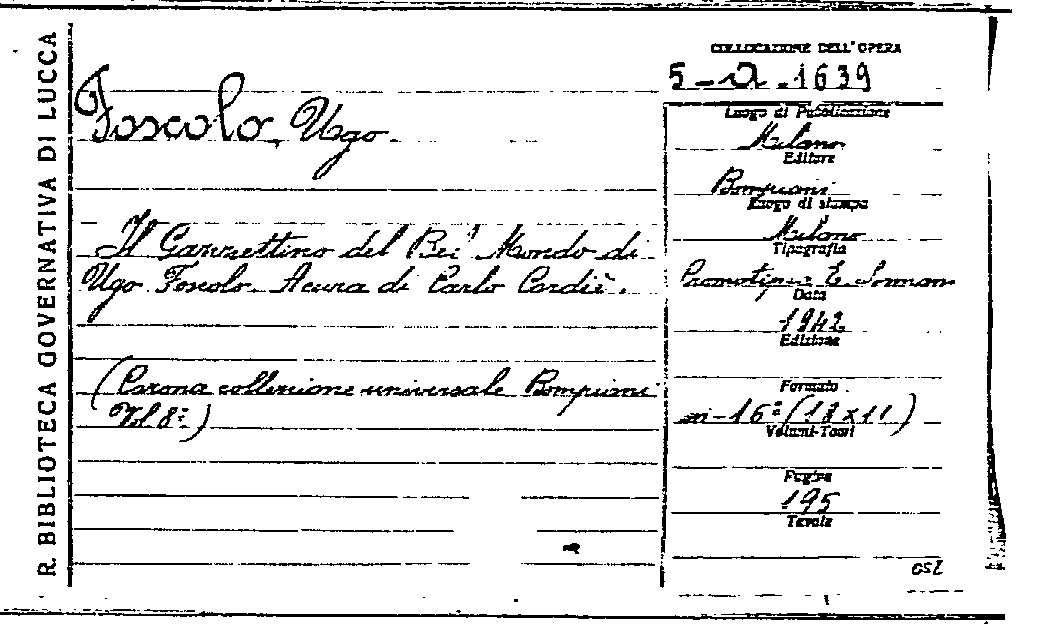 R. BIBLIOTECA GOVERNATIVA DI LUCCA
Foscolo, Ugo.
Il Gazzettino del Bel Mondo di
Ugo Foscolo. A cura di Carlo Cordiè.
(Corona collezione universale Bompiani
Vol 8º)
COLLOCAZIONE DELL'OPERA
5-a-1639
Luogo di Pubblicazione
Milano
Editore
Bompiani
Luogo di stampa
Milano
Tipografia
E.
Data
1942
Edizione
Formato
in-16º (18x11)
Volumi-Tomi
Pagine
195
Tavole